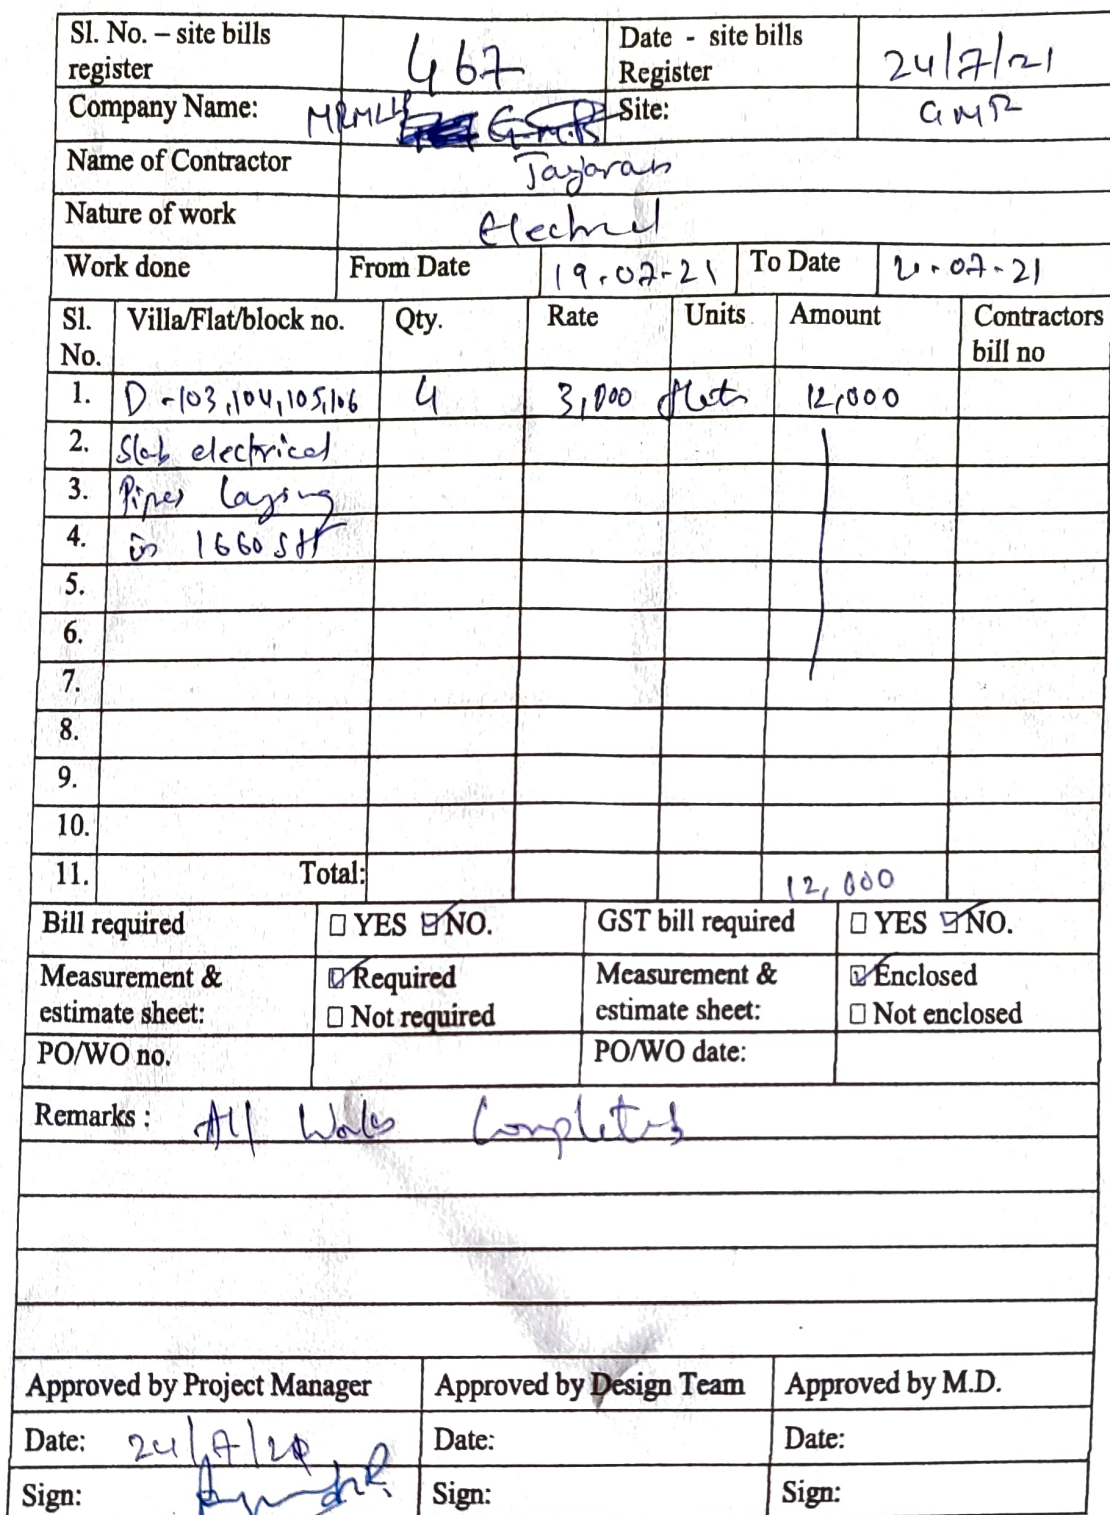 Sl. No. – site bills register 467 Date - site bills Register 24/7/21
Company Name: MRMLLP GMR Site: GMR
Name of Contractor Jayaram
Nature of work Electrical
Work done From Date 19.07-21 To Date 21.07-21
Sl. No. Villa/Flat/block no. Qty. Rate Units Amount Contractors bill no
1. D-103,104,105,106 4 3,000 flats 12,000
2. Slab electrical
3. Pipes laying
4. in 1660 sft
5.
6.
7.
8.
9.
10.
11. Total: 12,000
Bill required ☐ YES ☑ NO. GST bill required ☐ YES ☑ NO.
Measurement & estimate sheet: ☑ Required ☐ Not required Measurement & estimate sheet: ☑ Enclosed ☐ Not enclosed
PO/WO no. PO/WO date:
Remarks : All Works Completed
Approved by Project Manager Approved by Design Team Approved by M.D.
Date: 24/7/21 Date: Date:
Sign: Sign: Sign: